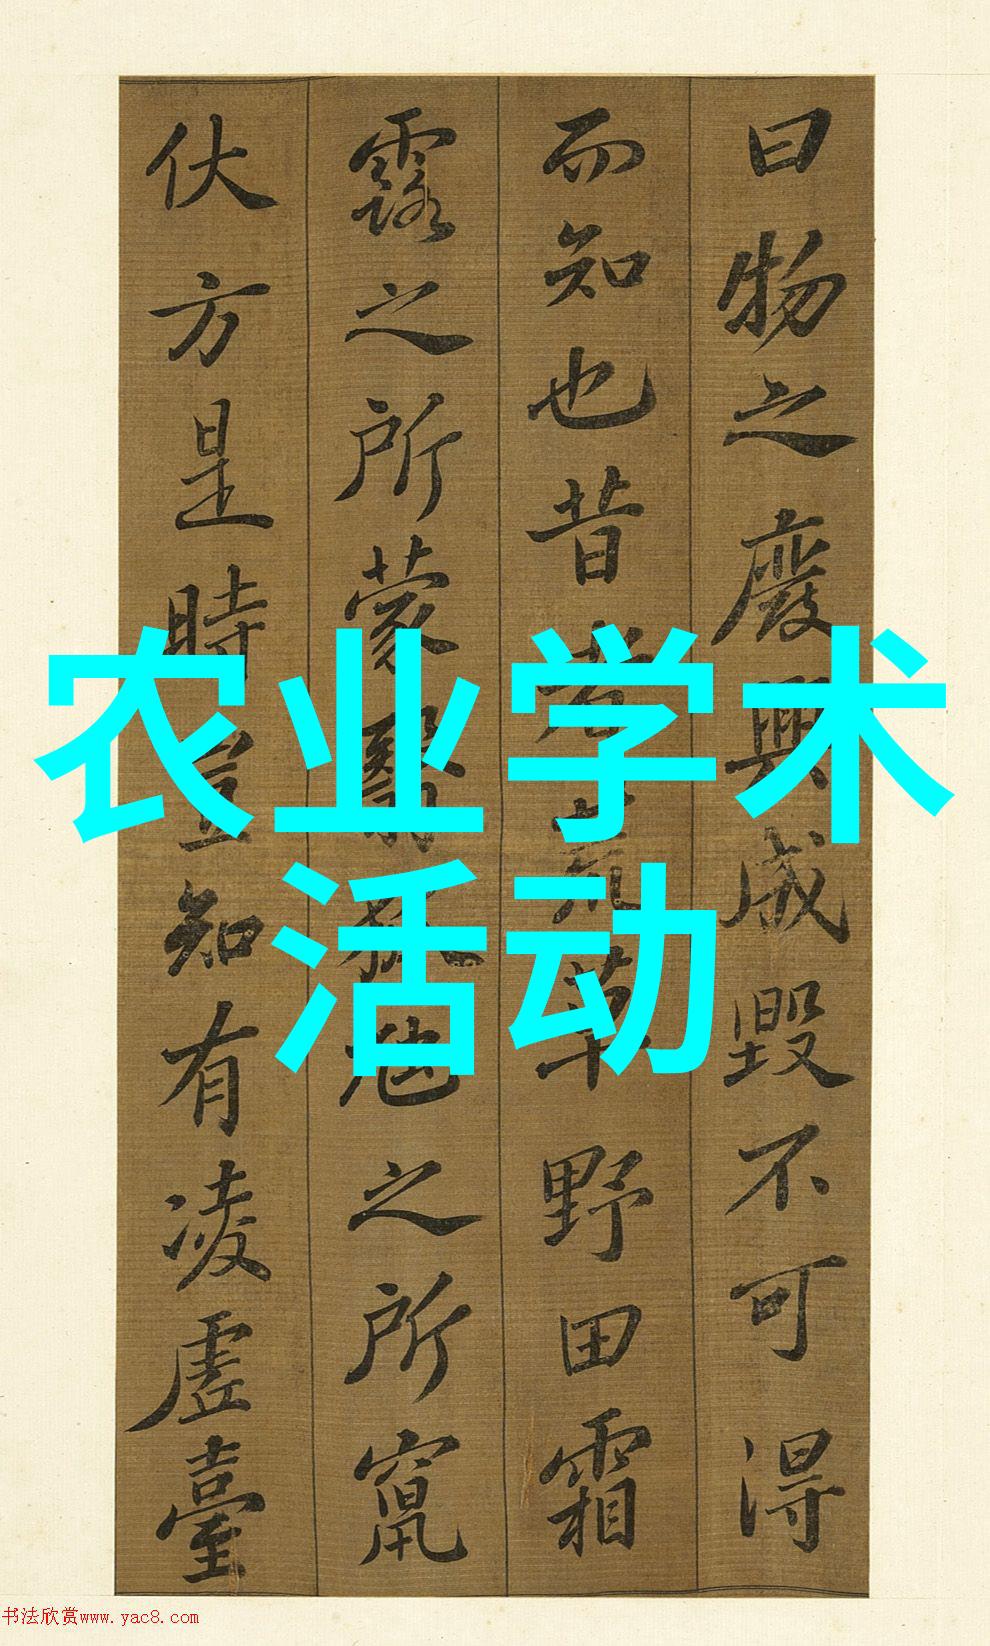 曰物之廢興成毀不可得
而知也昔者荒草野田霜
露之所蒙翳狐虺之所竄
伏方是時豈知有凌虛臺
农业学术
活动
书法欣赏www.yac8.com